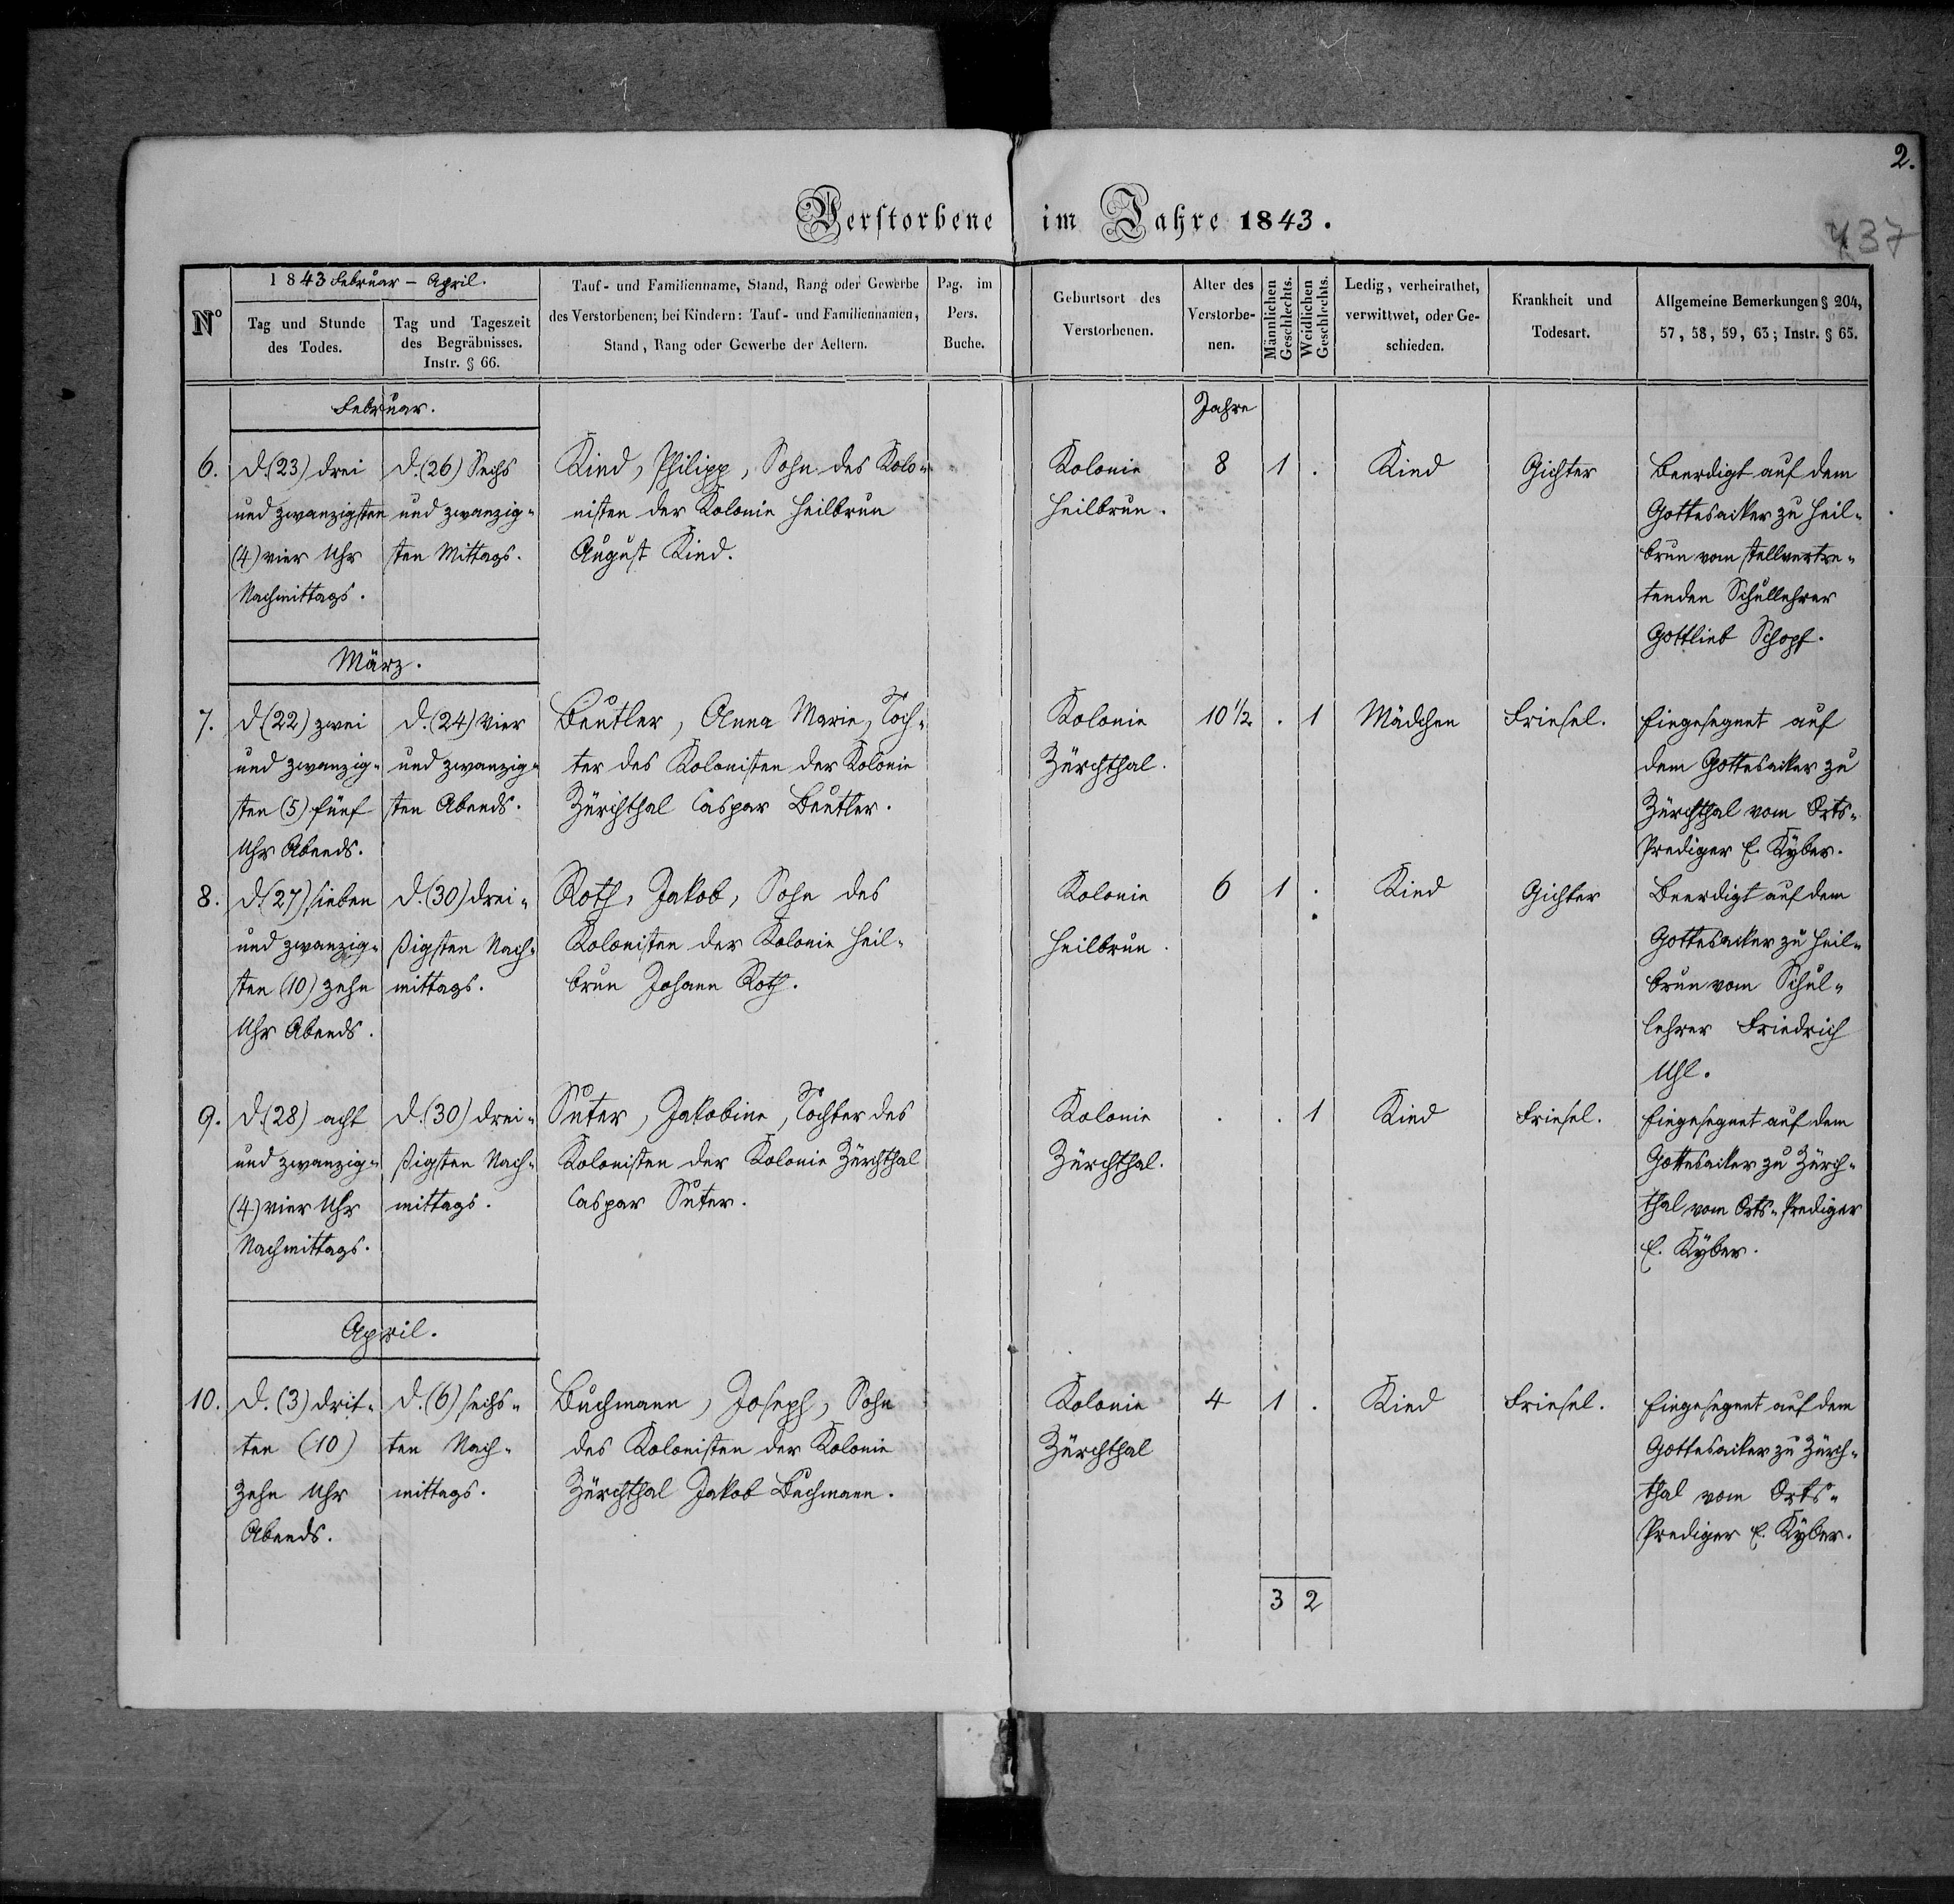 2.
Verstorbene im Jahre 1843.
437
Nº
1843 Februar - April.
Tag und Stunde
des Todes.
Tag und Tageszeit
des Begräbnisses.
Instr. § 66.
Tauf- und Familienname, Stand, Rang oder Gewerbe
des Verstorbenen; bei Kindern: Tauf- und Familiennamen,
Stand, Rang oder Gewerbe der Aeltern.
Pag. im
Pers.
Buche.
Geburtsort des
Verstorbenen.
Alter des
Verstorbe-
nen.
Männlichen
Geschlechts.
Weidlichen
Geschlechts.
Ledig, verheirathet,
verwittwet, oder Ge-
schieden.
Krankheit und
Todesart.
Allgemeine Bemerkungen § 204,
57, 58, 59, 63; Instr. § 65.
Februar.
Jahre
6.
d. (23) drei
und zwanzigsten
(4) vier Uhr
Nachmittags.
d. (26) Sechs
und zwanzig-
sten Mittags.
Kind, Philipp, Sohn des Kolo-
nisten der Kolonie Heilbrun
August Kind.
Kolonie
Heilbrun.
8
1
.
Kind
Gichter
Beerdigt auf dem
Gottesacker zu Heil-
brun vom stellvertre-
tenden Schullehrer
Gottlieb Schopf.
März.
7.
d (22) zwei
und zwanzig-
sten (5) fünf
Uhr Abends.
d. (24) vier
und zwanzig-
sten Abends.
Beutler, Anna Marie, Toch-
ter des Kolonisten der Kolonie
Zürichthal Caspar Beutler.
Kolonie
Zürchthal.
10 1/2
.
1
Mädchen
Friesel.
Eingesegnet auf
dem Gottesacker zu
Zürchthal vom Orts-
Prediger E. Kyber.
8.
d. (27) sieben
und zwanzig-
sten (10) zehn
Uhr Abends.
d. (30) drei-
ßigsten Nach-
mittags.
Roth, Jakob, Sohn des
Kolonisten der Kolonie Heil-
brun Johann Roth.
Kolonie
Heilbrun.
6
1
.
Kind
Gichter
Beerdigt auf dem
Gottesacker zu Heil-
brun vom Schul-
lehrer Friedrich
Uhl.
9.
d. (28) acht
und zwanzig-
(4) vier Uhr
Nachmittags.
d. (30) drei-
ßigsten Nach-
mittags.
Suter, Jakobine, Tochter des
Kolonisten der Kolonie Zürchthal
Caspar Suter.
Kolonie
Zürchthal.
.
.
1
Kind
Friesel.
Eingesegnet auf dem
Gottesacker zu Zürch-
thal vom Orts-Prediger
E. Kyber.
April.
10.
d. (3) drit-
ten (10)
zehn Uhr
Abends.
d. (6) sechs-
ten Nach-
mittags.
Buchmann, Joseph, Sohn
des Kolonisten der Kolonie
Zürchthal Jakob Buchmann.
Kolonie
Zürchthal
4
1
.
Kind
Friesel.
Eingesegnet auf dem
Gottesacker zu Zürch-
thal vom Orts-
Prediger E. Kyber.
3
2